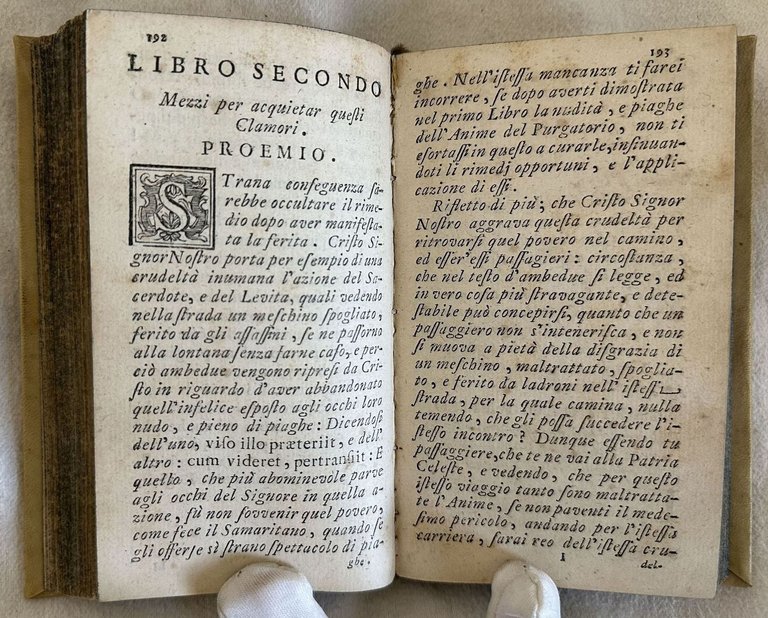 192
LIBRO SECONDO
Mezzi per acquietar questi
Clamori.
PROEMIO.
STrana conseguenza sa-
rebbe occultare il rime-
dio dopo aver manifesta-
ta la ferita. Cristo Si-
gnor Nostro porta per esempio di una
crudeltà inumana l'azione del Sa-
cerdote, e del Levita, quali vedendo
nella strada un meschino spogliato,
ferito da gli assassini, se ne passorno
alla lontana senza farne caso, e per-
ciò ambedue vengono ripresi da Cri-
sto in riguardo d'aver abbandonato
quell'infelice esposto agli occhi loro
nudo, e pieno di piaghe: Dicendosi
dell'uno, viso illo præteriit, e dell'
altro: cum videret, pertransiit: E
quello, che più abominevole parve
agli occhi del Signore in quella a-
zione, fù non sovvenir quel povero,
come fece il Samaritano, quando se
gli offerse sì strano spettacolo di pia-
ghe.
193
ghe. Nell'istessa mancanza ti farei
incorrere, se dopo averti dimostrata
nel primo Libro la nudità, e piaghe
dell'Anime del Purgatorio, non ti
esortassi in questo a curarle, insinuan-
doti li rimedj opportuni, e l'appli-
cazione di essi.
Rifletto di più; che Cristo Signor
Nostro aggrava questa crudeltà per
ritrovarsi quel povero nel camino,
ed esser'essi passagieri: circostanza,
che nel testo d'ambedue si legge, ed
in vero cosa più stravagante, e dete-
stabile può concepirsi, quanto che un
passaggiero non s'intenerisca, e non
si muova a pietà della disgrazia di
un meschino, maltrattato, spoglia-
to, e ferito da ladroni nell'istessa
strada, per la quale camina, nulla
temendo, che gli possa succedere l'i-
stesso incontro? Dunque essendo tu
passaggiere, che te ne vai alla Patria
Celeste, e vedendo, che per questo
istesso viaggio tanto sono maltratta-
te l'Anime, se non paventi il mede-
simo pericolo, andando per l'istessa
carriera, sarai reo dell'istessa cru-
I
del-